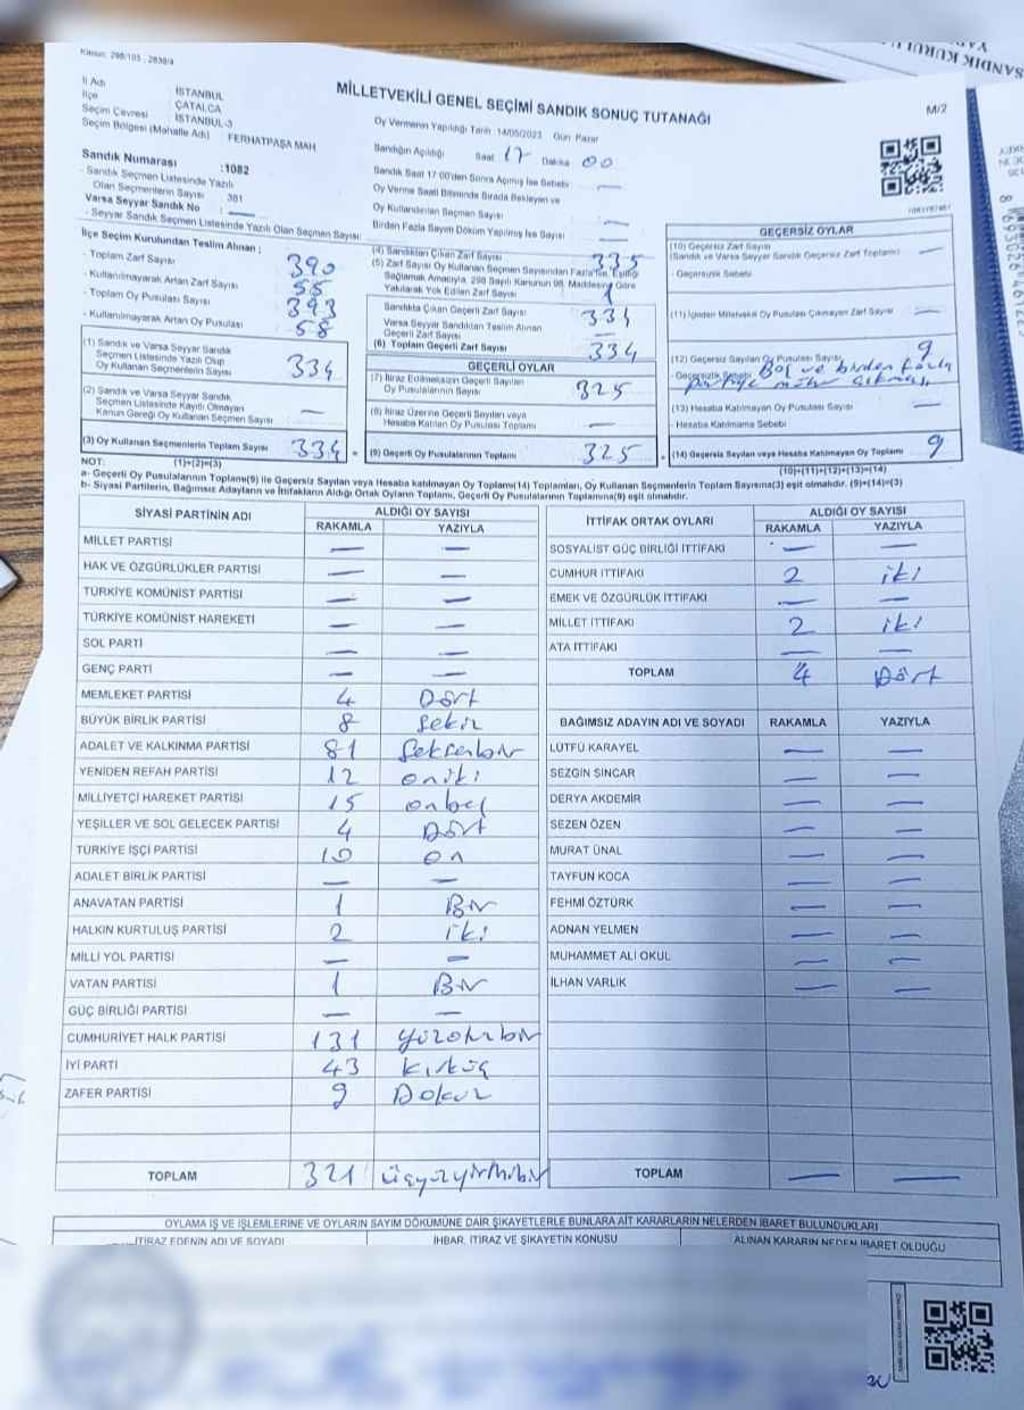 Kanun: 298/105 - 2839/4
MİLLETVEKİLİ GENEL SEÇİMİ SANDIK SONUÇ TUTANAĞI
M/2
İl Adı İSTANBUL
İlçe ÇATALCA
Seçim Çevresi İSTANBUL-3
Seçim Bölgesi (Mahalle Adı) FERHATPAŞA MAH
Oy Vermenin Yapıldığı Tarih :14/05/2023 Gün Pazar
Sandığın Açıldığı Saat 17 Dakika 00
Sandık Saat 17:00'den Sonra Açılmış İse Sebebi —
Oy Verme Saati Bitiminde Sırada Bekleyen ve
Oy Kullandırılan Seçmen Sayısı —
Birden Fazla Sayım Döküm Yapılmış İse Sayısı —
Sandık Numarası :1082
- Sandık Seçmen Listesinde Yazılı
Olan Seçmenlerin Sayısı 381
Varsa Seyyar Sandık No : —
- Seyyar Sandık Seçmen Listesinde Yazılı Olan Seçmen Sayısı:
İlçe Seçim Kurulundan Teslim Alınan ;
- Toplam Zarf Sayısı 390
- Kullanılmayarak Artan Zarf Sayısı 55
- Toplam Oy Pusulası Sayısı 393
- Kullanılmayarak Artan Oy Pusulası 58
(1) Sandık ve Varsa Seyyar Sandık
Seçmen Listesinde Yazılı Olup
Oy Kullanan Seçmenlerin Sayısı 334
(2) Sandık ve Varsa Seyyar Sandık
Seçmen Listesinde Kayıtlı Olmayan
Kanun Gereği Oy Kullanan Seçmen Sayısı —
(3) Oy Kullanan Seçmenlerin Toplam Sayısı 334
(4) Sandıktan Çıkan Zarf Sayısı 335
(5) Zarf Sayısı Oy Kullanan Seçmen Sayısından Fazla İse, Eşitliği
Sağlamak Amacıyla, 298 Sayılı Kanunun 98. Maddesine Göre
Yakılarak Yok Edilen Zarf Sayısı 1
Sandıkta Çıkan Geçerli Zarf Sayısı 334
Varsa Seyyar Sandıktan Teslim Alınan
Geçerli Zarf Sayısı —
(6) Toplam Geçerli Zarf Sayısı 334
GEÇERLİ OYLAR
(7) İtiraz Edilmeksizin Geçerli Sayılan
Oy Pusulalarının Sayısı 325
(8) İtiraz Üzerine Geçerli Sayılan veya
Hesaba Katılan Oy Pusulası Toplamı —
= (9) Geçerli Oy Pusulalarının Toplamı 325
GEÇERSİZ OYLAR
(10) Geçersiz Zarf Sayısı
(Sandık ve Varsa Seyyar Sandık Geçersiz Zarf Toplamı) —
- Geçersizlik Sebebi
(11) İçinden Milletvekili Oy Pusulası Çıkmayan Zarf Sayısı —
(12) Geçersiz Sayılan Oy Pusulası Sayısı 9
- Geçersizlik Sebebi Boş ve birden fazla
partiye mühür çıkması
(13) Hesaba Katılmayan Oy Pusulası Sayısı —
- Hesaba Katılmama Sebebi
+ (14) Geçersiz Sayılan veya Hesaba Katılmayan Oy Toplamı 9
NOT: (1)+(2)=(3) (10)+(11)+(12)+(13)=(14)
a- Geçerli Oy Pusulalarının Toplamı(9) ile Geçersiz Sayılan veya Hesaba katılmayan Oy Toplamı(14) Toplamları, Oy Kullanan Seçmenlerin Toplam Sayısına(3) eşit olmalıdır. (9)+(14)=(3)
b- Siyasi Partilerin, Bağımsız Adayların ve İttifakların Aldığı Ortak Oyların Toplamı, Geçerli Oy Pusulalarının Toplamına(9) eşit olmalıdır.
SİYASİ PARTİNİN ADI ALDIĞI OY SAYISI
RAKAMLA YAZIYLA
MİLLET PARTİSİ — —
HAK VE ÖZGÜRLÜKLER PARTİSİ — —
TÜRKİYE KOMÜNİST PARTİSİ — —
TÜRKİYE KOMÜNİST HAREKETİ — —
SOL PARTİ — —
GENÇ PARTİ — —
MEMLEKET PARTİSİ 4 Dört
BÜYÜK BİRLİK PARTİSİ 8 Sekiz
ADALET VE KALKINMA PARTİSİ 81 Seksenbir
YENİDEN REFAH PARTİSİ 12 oniki
MİLLİYETÇİ HAREKET PARTİSİ 15 onbeş
YEŞİLLER VE SOL GELECEK PARTİSİ 4 Dört
TÜRKİYE İŞÇİ PARTİSİ 10 on
ADALET BİRLİK PARTİSİ — —
ANAVATAN PARTİSİ 1 Bir
HALKIN KURTULUŞ PARTİSİ 2 iki
MİLLİ YOL PARTİSİ — —
VATAN PARTİSİ 1 Bir
GÜÇ BİRLİĞİ PARTİSİ — —
CUMHURİYET HALK PARTİSİ 131 Yüzotuzbir
İYİ PARTİ 43 Kırküç
ZAFER PARTİSİ 9 Dokuz
TOPLAM 321 Üçyüzyirmibir
İTTİFAK ORTAK OYLARI ALDIĞI OY SAYISI
RAKAMLA YAZIYLA
SOSYALİST GÜÇ BİRLİĞİ İTTİFAKI — —
CUMHUR İTTİFAKI 2 iki
EMEK VE ÖZGÜRLÜK İTTİFAKI — —
MİLLET İTTİFAKI 2 iki
ATA İTTİFAKI — —
TOPLAM 4 Dört
BAĞIMSIZ ADAYIN ADI VE SOYADI RAKAMLA YAZIYLA
LÜTFÜ KARAYEL — —
SEZGİN SİNCAR — —
DERYA AKDEMİR — —
SEZEN ÖZEN — —
MURAT ÜNAL — —
TAYFUN KOCA — —
FEHMİ ÖZTÜRK — —
ADNAN YELMEN — —
MUHAMMET ALİ OKUL — —
İLHAN VARLIK — —
TOPLAM — —
OYLAMA İŞ VE İŞLEMLERİNE VE OYLARIN SAYIM DÖKÜMÜNE DAİR ŞİKAYETLERLE BUNLARA AİT KARARLARIN NELERDEN İBARET BULUNDUKLARI
İTİRAZ EDENİN ADI VE SOYADI İHBAR, İTİRAZ VE ŞİKAYETİN KONUSU ALINAN KARARIN NEDEN İBARET OLDUĞU